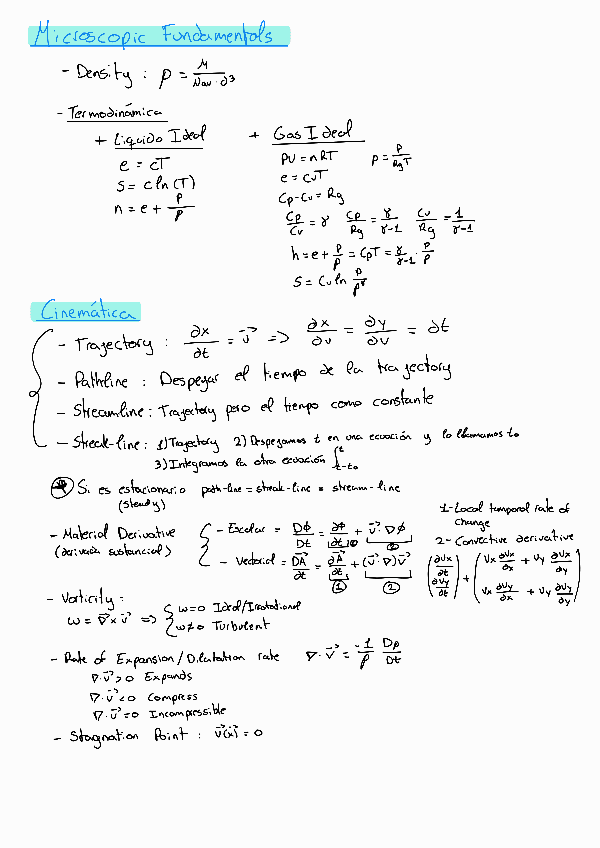 Microscopic Fundamentals
- Density : ρ = M / (Nav · ∂³)
- Termodinámica
+ Liquido Ideal
e = cT
S = c ln(T)
n = e + P/ρ
+ Gas Ideal
PV = nRT ρ = P/(RgT)
e = CvT
Cp - Cv = Rg
Cp/Cv = γ Cp/Rg = γ/(γ-1) Cv/Rg = 1/(γ-1)
h = e + P/ρ = CpT = γ/(γ-1) · P/ρ
S = Cv ln P/ρ^γ
Cinemática
- Trayectory : ∂x/∂t = v⃗ => ∂x/∂v = ∂y/∂v = ∂t
- Pathline : Despejar el tiempo de la trayectory
- Streamline : Trayectory pero el tiempo como constante
- Streak-line : 1) Trayectory 2) Despejamos t en una ecuación y lo llamamos to
3) Integramos la otra ecuación ∫ t t-to
* Si es estacionario path-line = streak-line = stream-line
(Steady)
- Material Derivative
(derivada sustancial)
- Escalar = Dϕ/Dt = ∂ϕ/∂t ① + v⃗ · ∇ϕ ②
- Vectorial = DA⃗/∂t = ∂A⃗/∂t ① + (v⃗ · ∇)v⃗ ②
1- Local temporal rate of
change
2- Convective derivative
(∂Vx/∂t ∂Vy/∂t) + (Vx ∂Vx/∂x + Vy ∂Vx/∂y
Vx ∂Vy/∂x + Vy ∂Vy/∂y)
- Vorticity :
ω = ∇ × v⃗ => { ω=0 Ideal/Irrotational
ω≠0 Turbulent
- Rate of Expansion/Dilutation rate ∇ · v⃗ = -1/ρ Dρ/Dt
∇ · v⃗ > 0 Expands
∇ · v⃗ < 0 Compress
∇ · v⃗ = 0 Incompressible
- Stagnation Point : v⃗(x⃗) = 0